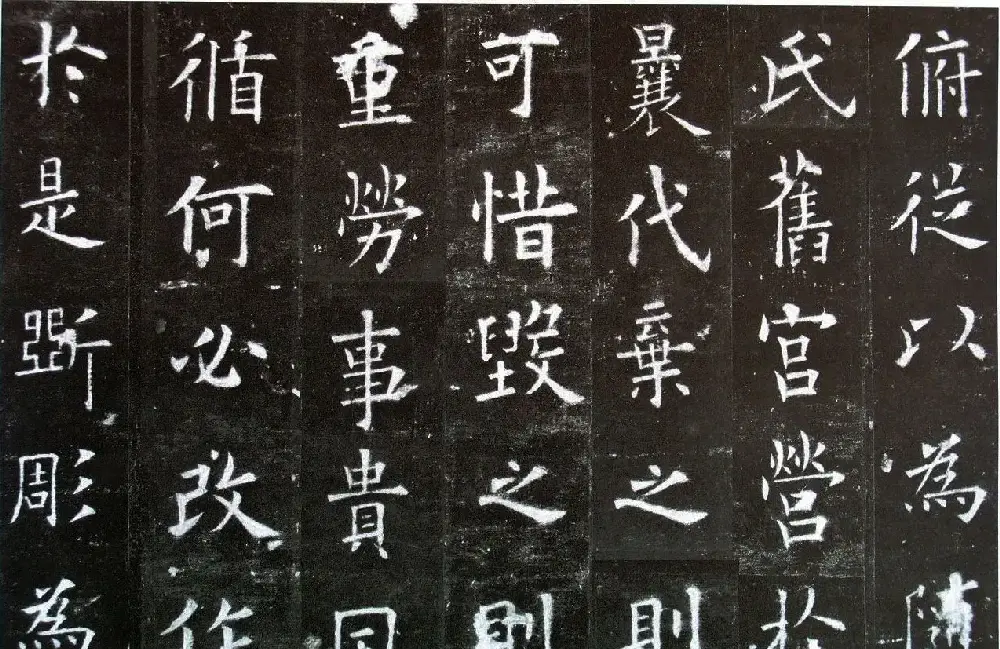 俯從以為隨
氏舊宮營於
曩代棄之則
可惜毀之則
重勞事貴因
循何必改作
於是斲彫為